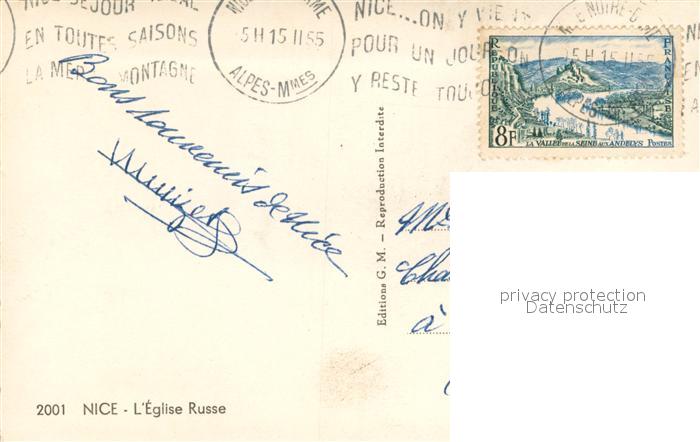 NICE SÉJOUR IDÉAL
EN TOUTES SAISONS
LA MER MONTAGNE
5 H 15 II 55
ALPES-Mmes
NICE...ON Y VIENT
POUR UN JOUR, ON
Y RESTE TOUJOURS
5 H 15 II 55
REPUBLIQUE
FRANÇAISE
8F
LA VALLÉE DE LA SEINE AUX ANDELYS POSTES
Bons souvenirs de Nice
Editions G. M. — Reproduction Interdite
à
privacy protection
Datenschutz
2001 NICE - L'Église Russe